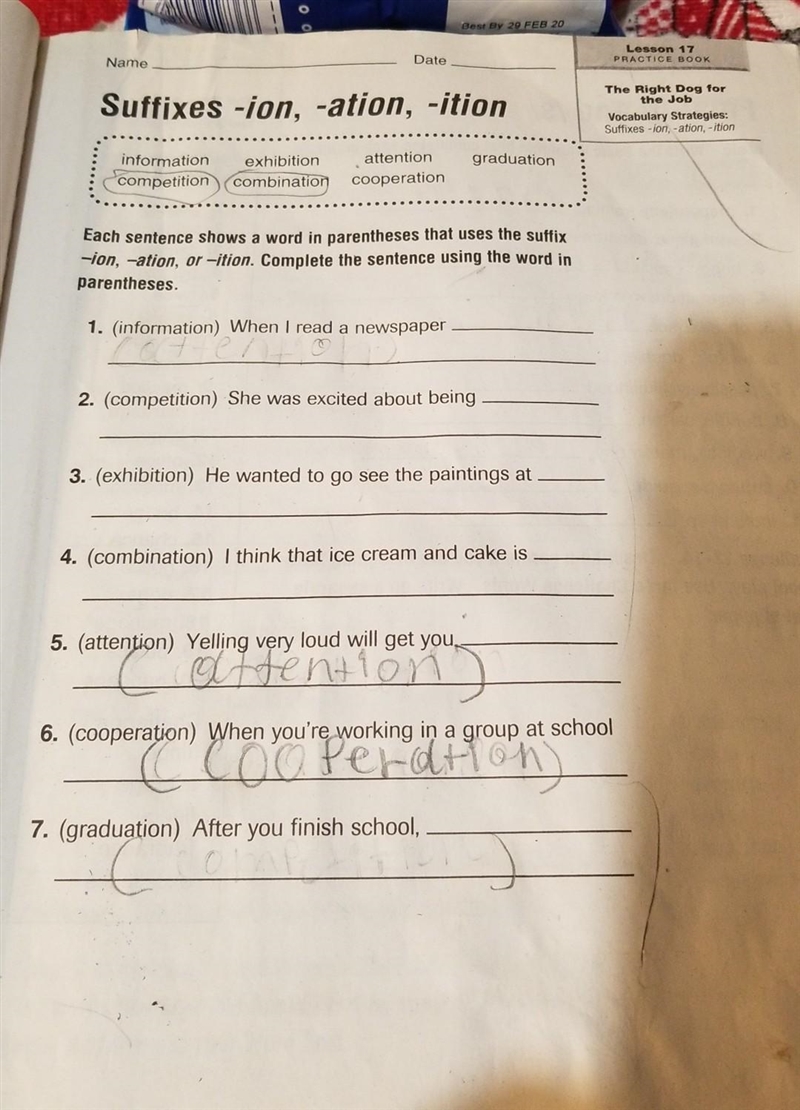 Best By 29 FEB 20
Name Date
Lesson 17
PRACTICE BOOK
Suffixes -ion, -ation, -ition
The Right Dog for
the Job
Vocabulary Strategies:
Suffixes -ion, -ation, -ition
information exhibition attention graduation
competition combination cooperation
Each sentence shows a word in parentheses that uses the suffix
–ion, –ation, or –ition. Complete the sentence using the word in
parentheses.
1. (information) When I read a newspaper
(attention)
2. (competition) She was excited about being
3. (exhibition) He wanted to go see the paintings at
4. (combination) I think that ice cream and cake is
5. (attention) Yelling very loud will get you
(attention)
6. (cooperation) When you're working in a group at school
(cooperation)
7. (graduation) After you finish school,